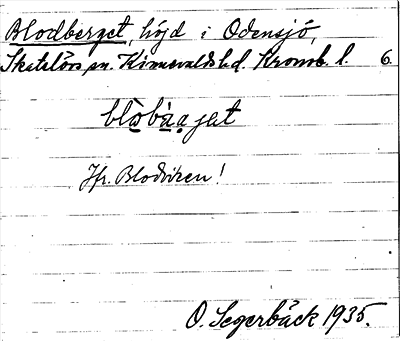 Blodberget, höjd i Odensjö,
Skatelövs sn. Kinnevalds hd. Kronob. l. 6.
blo̱ba̱a̱jat
Jfr. Blodviken!
O. Segerbäck 1935.